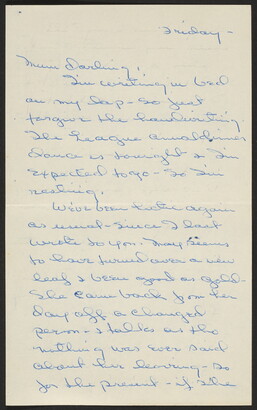 Friday -
Mum Darling,
I'm writing in bed
on my lap - so just
forgive the handwriting.
The League annual dinner
dance is tonight & I'm
expected to go - so I'm
resting.
We've been again
as usual - since I last
wrote to you. May seems
to have turned over a new
leaf & been good as gold.
She came back from her
day off a changed
person - & talks as tho
nothing was ever said
about her leaving - so
for the present - if she